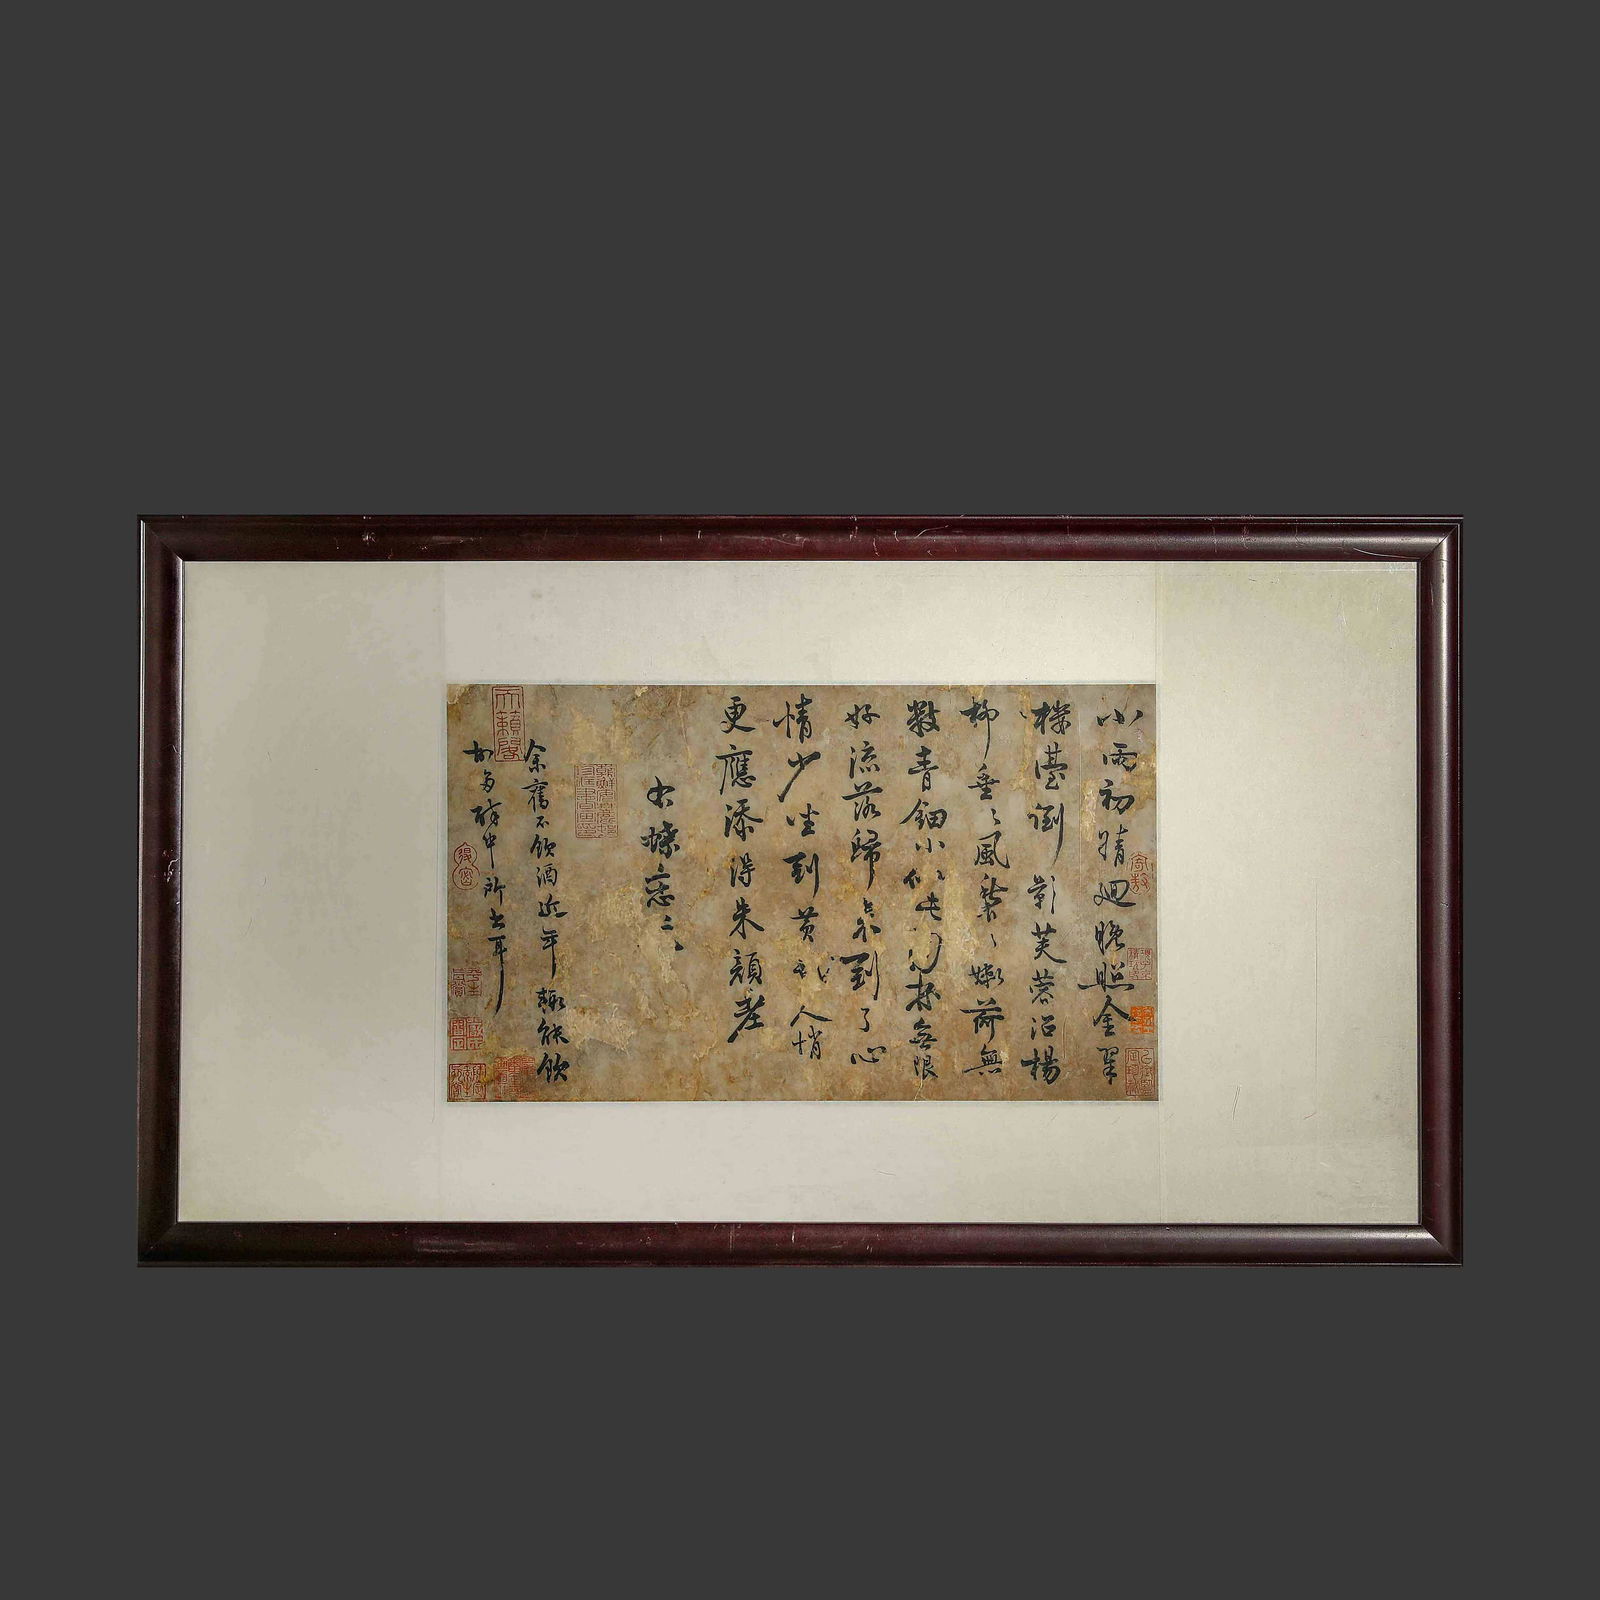 小雨初晴迴晚照金翠
樓臺倒影芙蓉沼楊
柳垂〻風裊〻嫩荷無
數青鈿小似此園林無限
好流落歸來到了心
情少坐到黄昏人悄
更應添得朱顏老
右蝶戀花
余舊不飲酒近年輒能飲
此多醉中所書耳
天籟閣